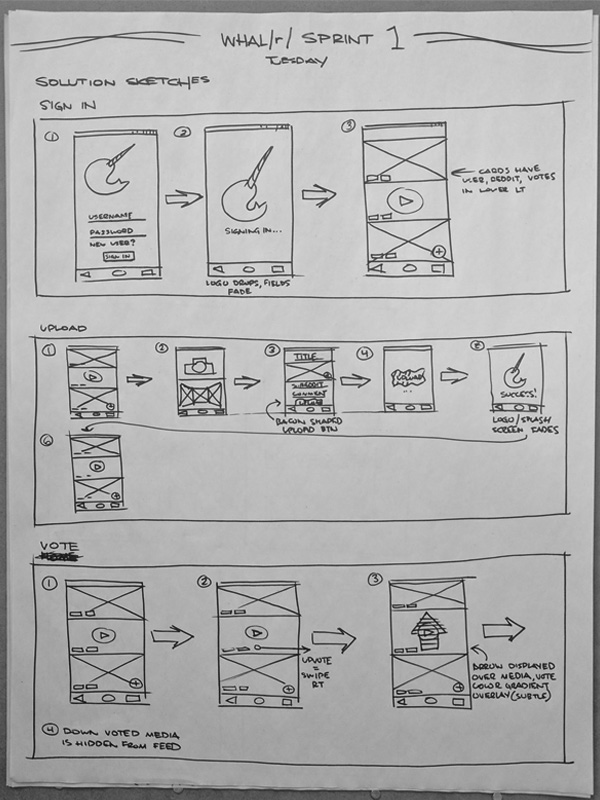 WHAL/r/ SPRINT 1
TUESDAY
SOLUTION SKETCHES
SIGN IN
1
2
3
USERNAME
PASSWORD
NEW USER?
SIGN IN
SIGNING IN...
LOGO DROPS, FIELDS
FADE
CARDS HAVE
USER, REDDIT, VOTES
IN LOWER LT
+
UPLOAD
1
2
3
4
5
TITLE
SUBREDDIT
COMMENT
UPLOAD
BACON SHAPED
UPLOAD BTN
...
SUCCESS!
LOGO/SPLASH
SCREEN FADES
6
+
VOTE
1
2
3
+
+
+
UPVOTE
=
SWIPE
RT
ARROW DISPLAYED
OVER MEDIA, VOTE
COLOR GRADIENT
OVERLAY (SUBTLE)
4 DOWN VOTED MEDIA
IS HIDDEN FROM FEED